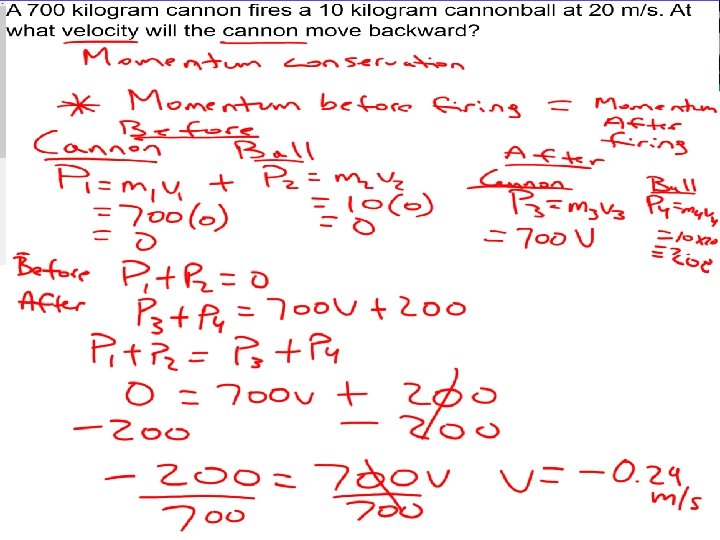 A 700 kilogram cannon fires a 10 kilogram cannonball at 20 m/s. At
what velocity will the cannon move backward?
Momentum conservation
* Momentum before firing = Momentum After firing
Before
Cannon Ball
P₁ = m₁v₁ + P₂ = m₂v₂
= 700(0) = 10(0)
= 0 = 0
After
Cannon Ball
P₃ = m₃v₃ P₄ = m₄v₄
= 700V = 10x20
= 200
Before P₁ + P₂ = 0
After P₃ + P₄ = 700V + 200
P₁ + P₂ = P₃ + P₄
0 = 700v + 200
-200 - 200
-200 = 700v V = -0.29 m/s
700 700